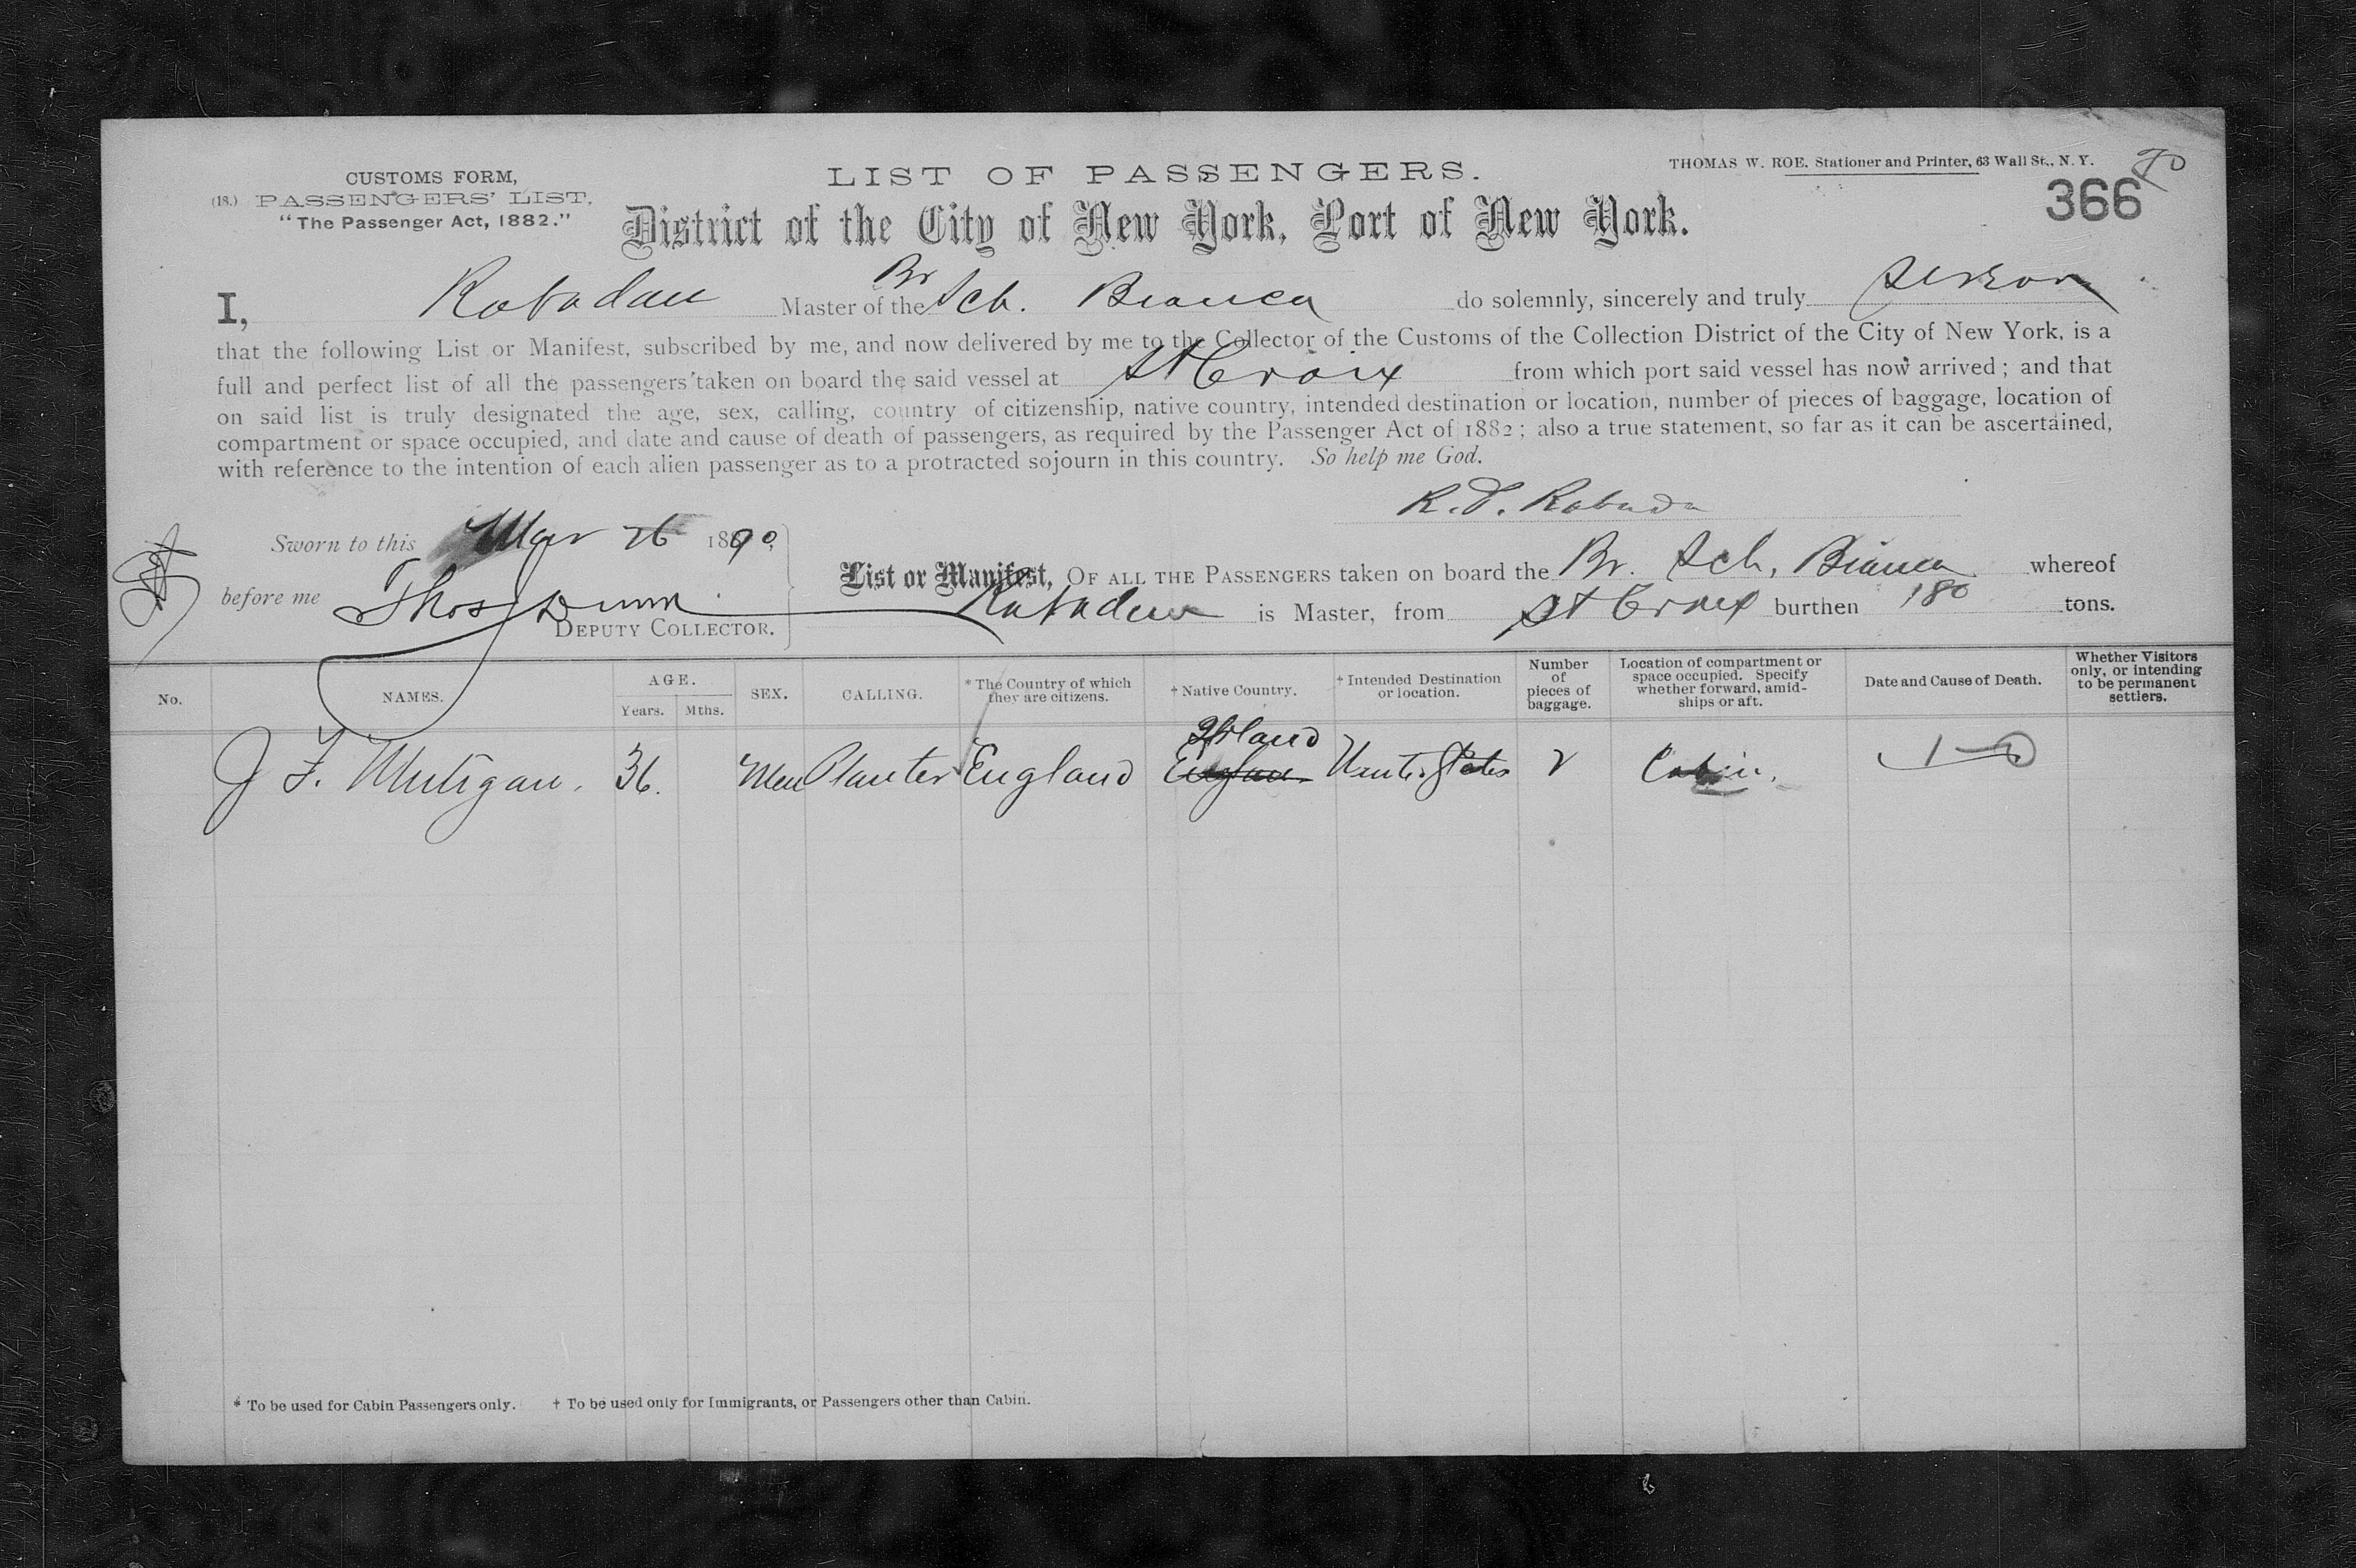 CUSTOMS FORM,
(18.) PASSENGERS' LIST,
"The Passenger Act, 1882."
LIST OF PASSENGERS.
THOMAS W. ROE, Stationer and Printer, 63 Wall St., N. Y.
366
District of the City of New York, Port of New York.
I, Master of the Br Sch. Bianca do solemnly, sincerely and truly
that the following List or Manifest, subscribed by me, and now delivered by me to the Collector of the Customs of the Collection District of the City of New York, is a
full and perfect list of all the passengers taken on board the said vessel at St Croix from which port said vessel has now arrived; and that
on said list is truly designated the age, sex, calling, country of citizenship, native country, intended destination or location, number of pieces of baggage, location of
compartment or space occupied, and date and cause of death of passengers, as required by the Passenger Act of 1882; also a true statement, so far as it can be ascertained,
with reference to the intention of each alien passenger as to a protracted sojourn in this country. So help me God.
Sworn to this Mar 26 1890
before me Thos Dunn
DEPUTY COLLECTOR.
List or Manifest, OF ALL THE PASSENGERS taken on board the Br. Sch. Bianca whereof
is Master, from St Croix burthen 180 tons.
No. NAMES. AGE. Years. Mths. SEX. CALLING. * The Country of which they are citizens. † Native Country. † Intended Destination or location. Number of pieces of baggage. Location of compartment or space occupied. Specify whether forward, amidships or aft. Date and Cause of Death. Whether Visitors only, or intending to be permanent settlers.
J F. 36. Planter England England Cabin.
* To be used for Cabin Passengers only. † To be used only for Immigrants, or Passengers other than Cabin.